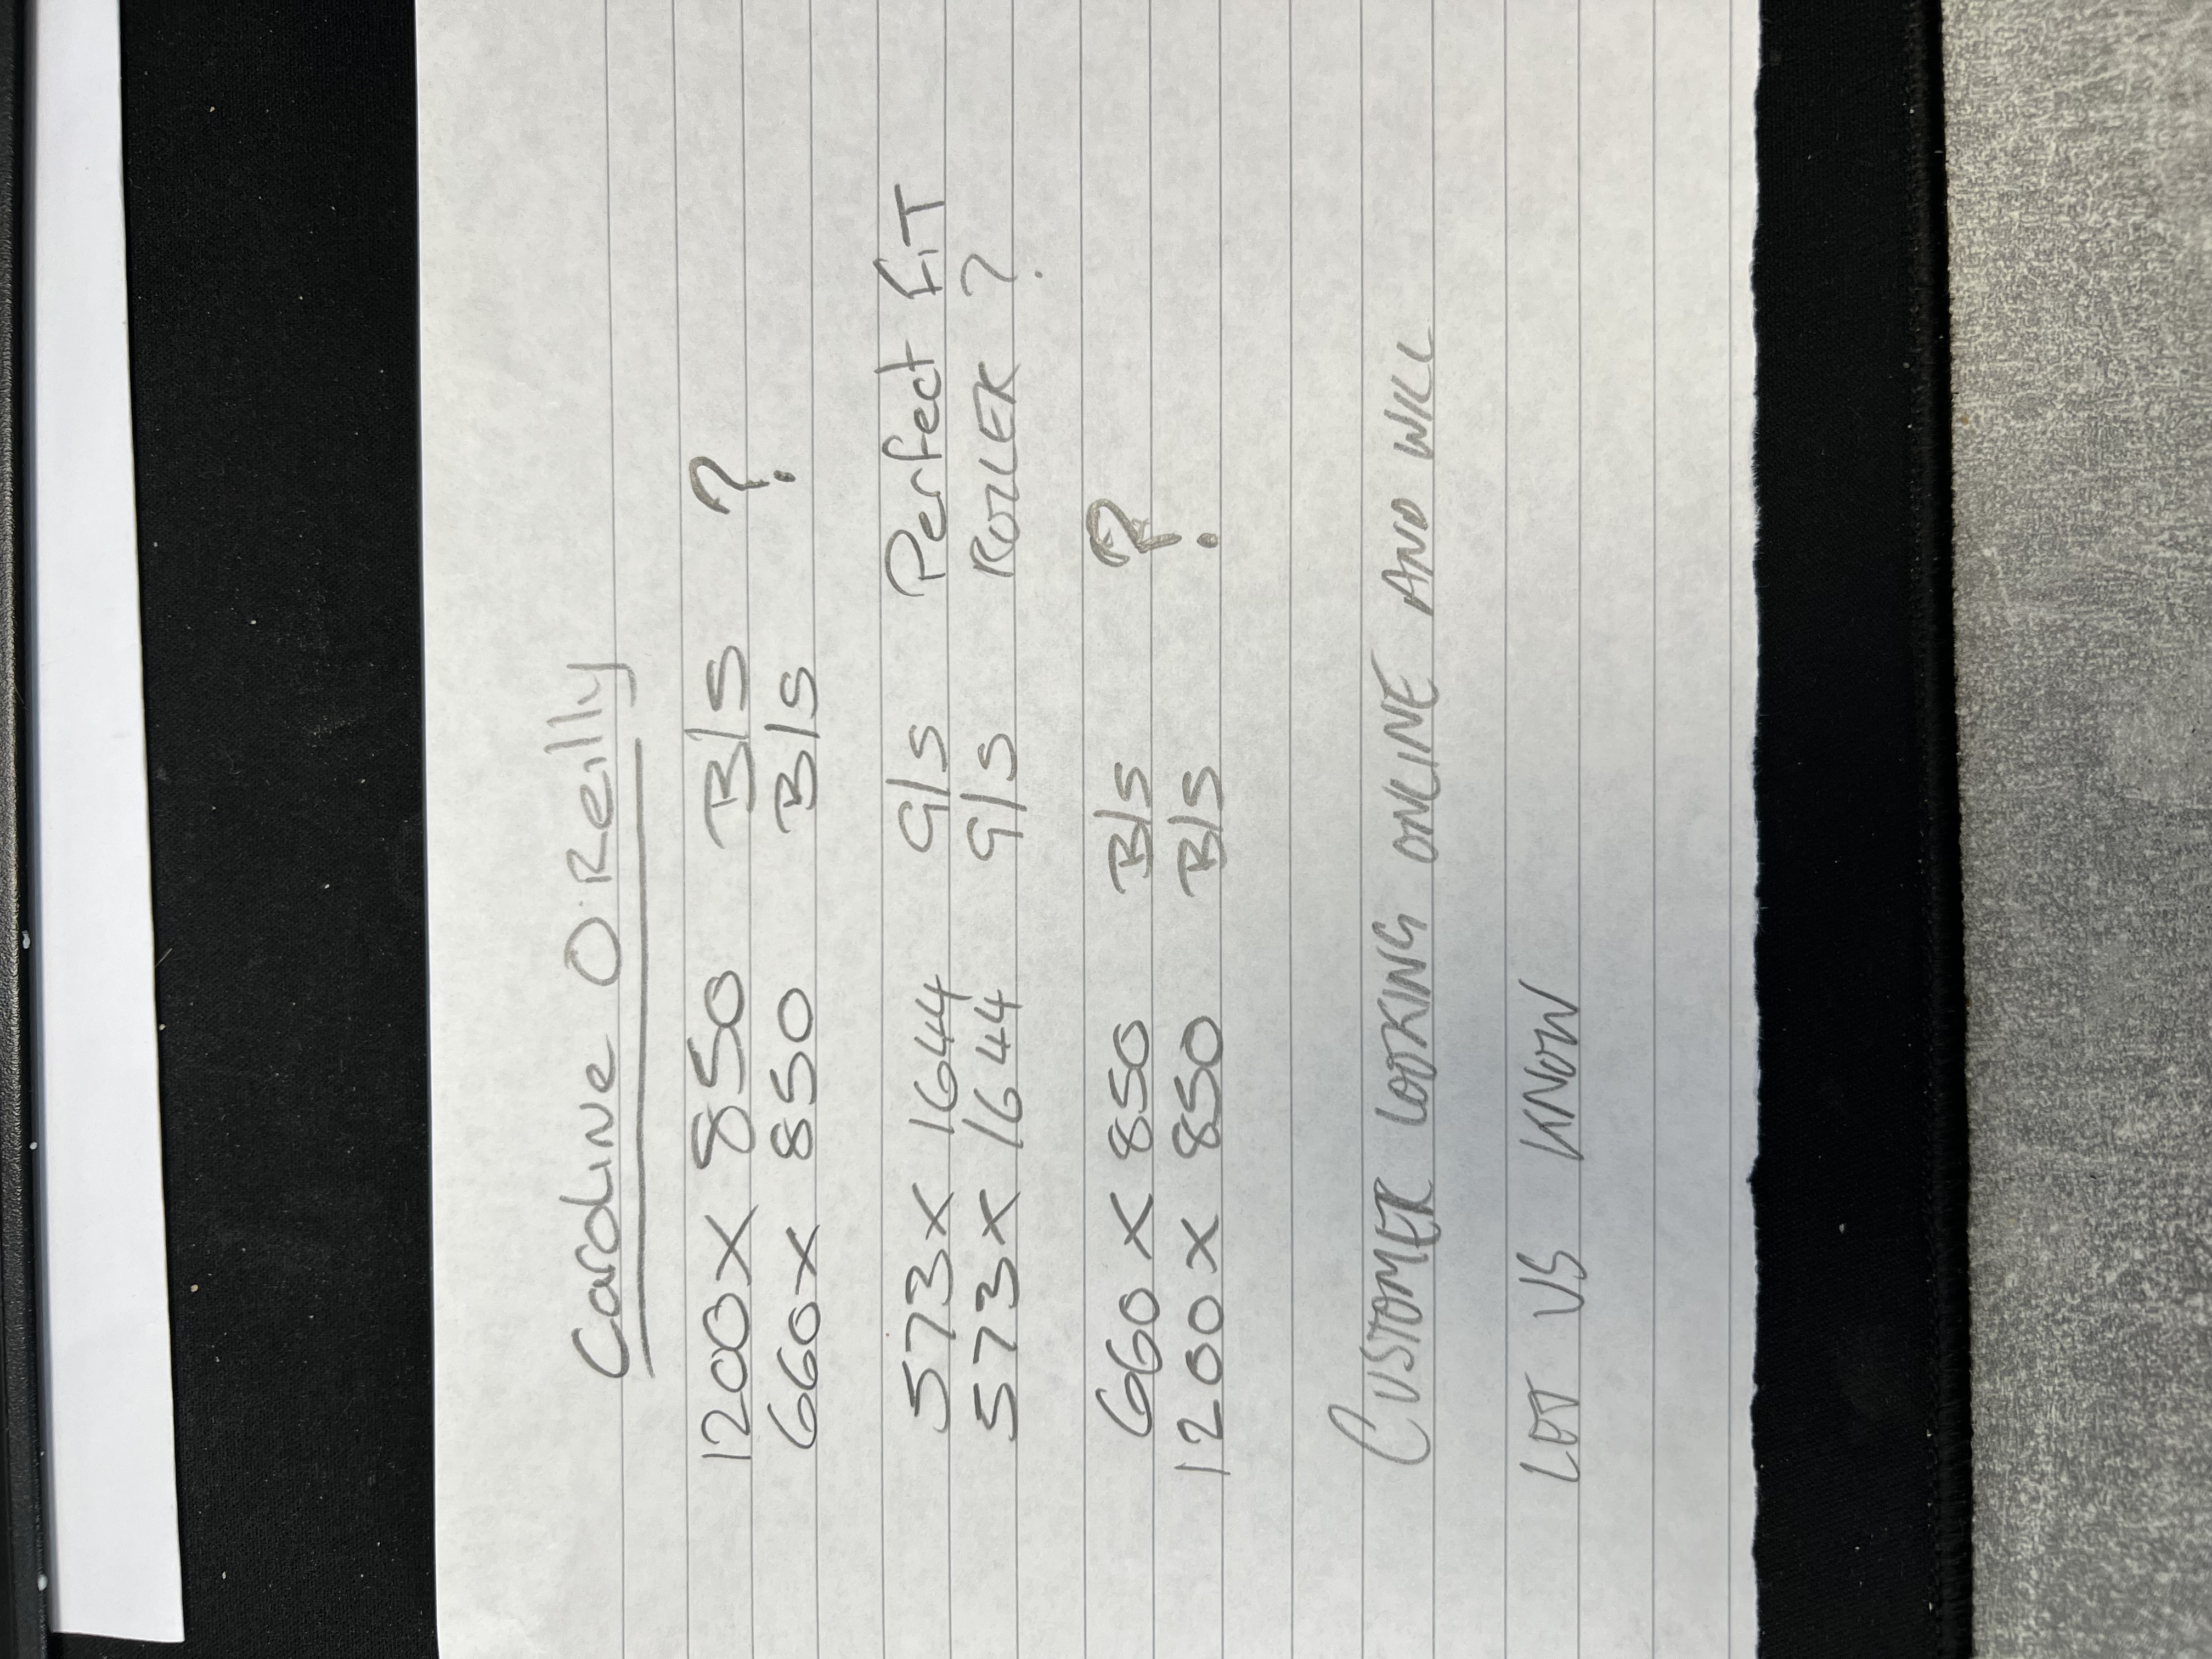 Caroline O'Reilly
1200 x 850 B/S ?
660 x 850 B/S
573 x 1644 G/S Perfect FiT
573 x 1644 G/S ROLLER ?
660 x 850 B/S ?
1200 x 850 B/S
CUSTOMER LOOKING ONLINE AND WILL
LET US KNOW